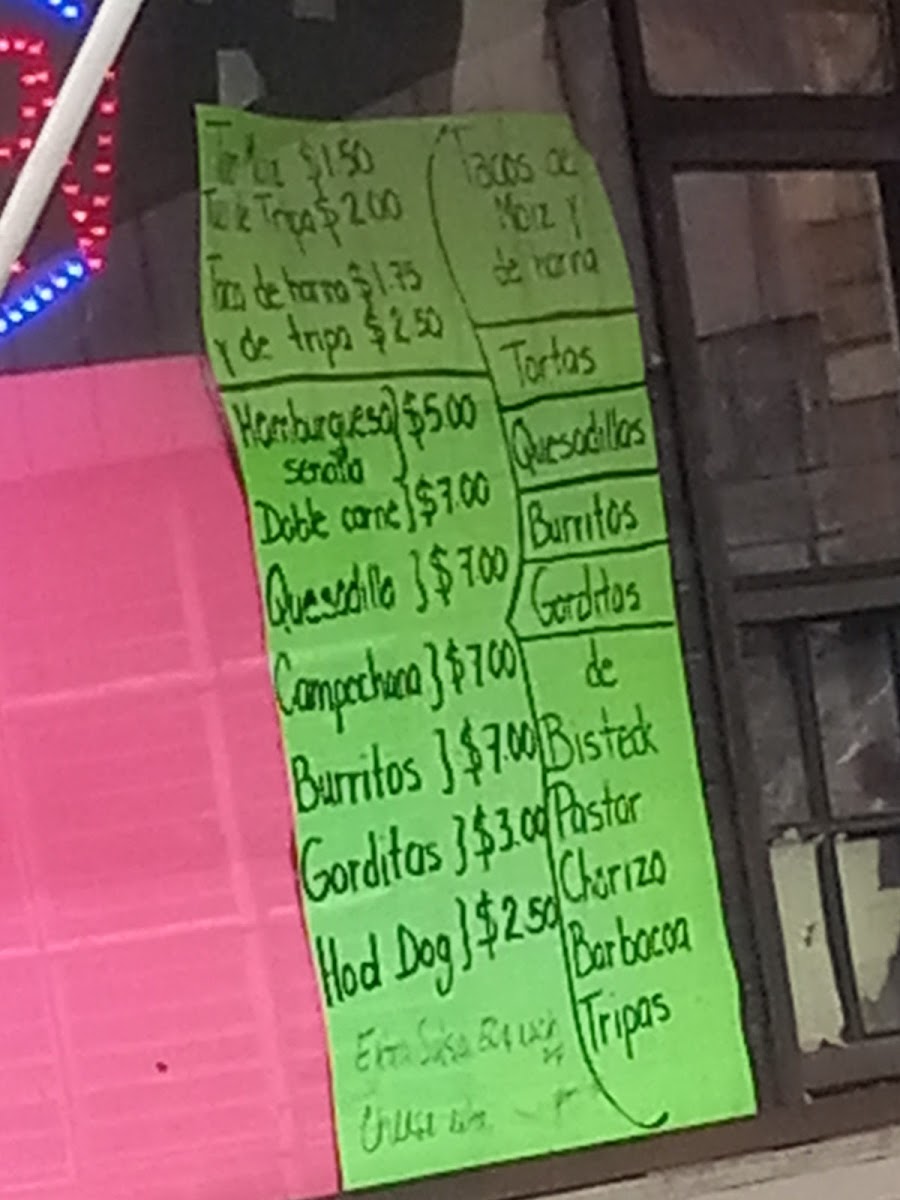 $1.50
de Tripa $2.00
de harina $1.75
y de tripa $2.50
Hamburguesa} $5.00
sencilla
Doble carne} $7.00
Quesadilla} $7.00
Campechana} $7.00
Burritos} $7.00
Gorditas} $3.00
Hod Dog} $2.50
Extra Salsa
Tacos de
Maiz y
de harina
Tortas
Quesadillas
Burritos
Gorditas
de
Bisteck
Pastor
Chorizo
Barbacoa
Tripas